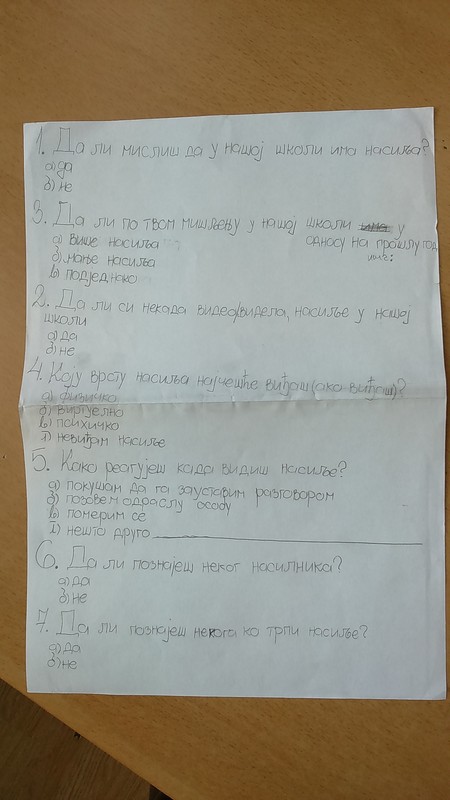 1. Да ли мислиш да у нашој школи има насиља?
а) да
б) не
3. Да ли по твом мишљењу у нашој школи има у
односу на прошлу год
ину:
а) више насиља
б) мање насиља
в) подједнако
2. Да ли си некада видео/видела, насиље у нашој
школи
а) да
б) не
4. Коју врсту насиља најчешће виђаш (ако виђаш)?
а) физичко
б) виртуелно
в) психичко
г) невиђам насиље
5. Како реагујеш када видиш насиље?
а) покушам да га зауставим разговором
б) позовем одраслу особу
в) померим се
г) нешто друго
6. Да ли познајеш неког насилника?
а) да
б) не
7. Да ли познајеш некога ко трпи насиље?
а) да
б) не